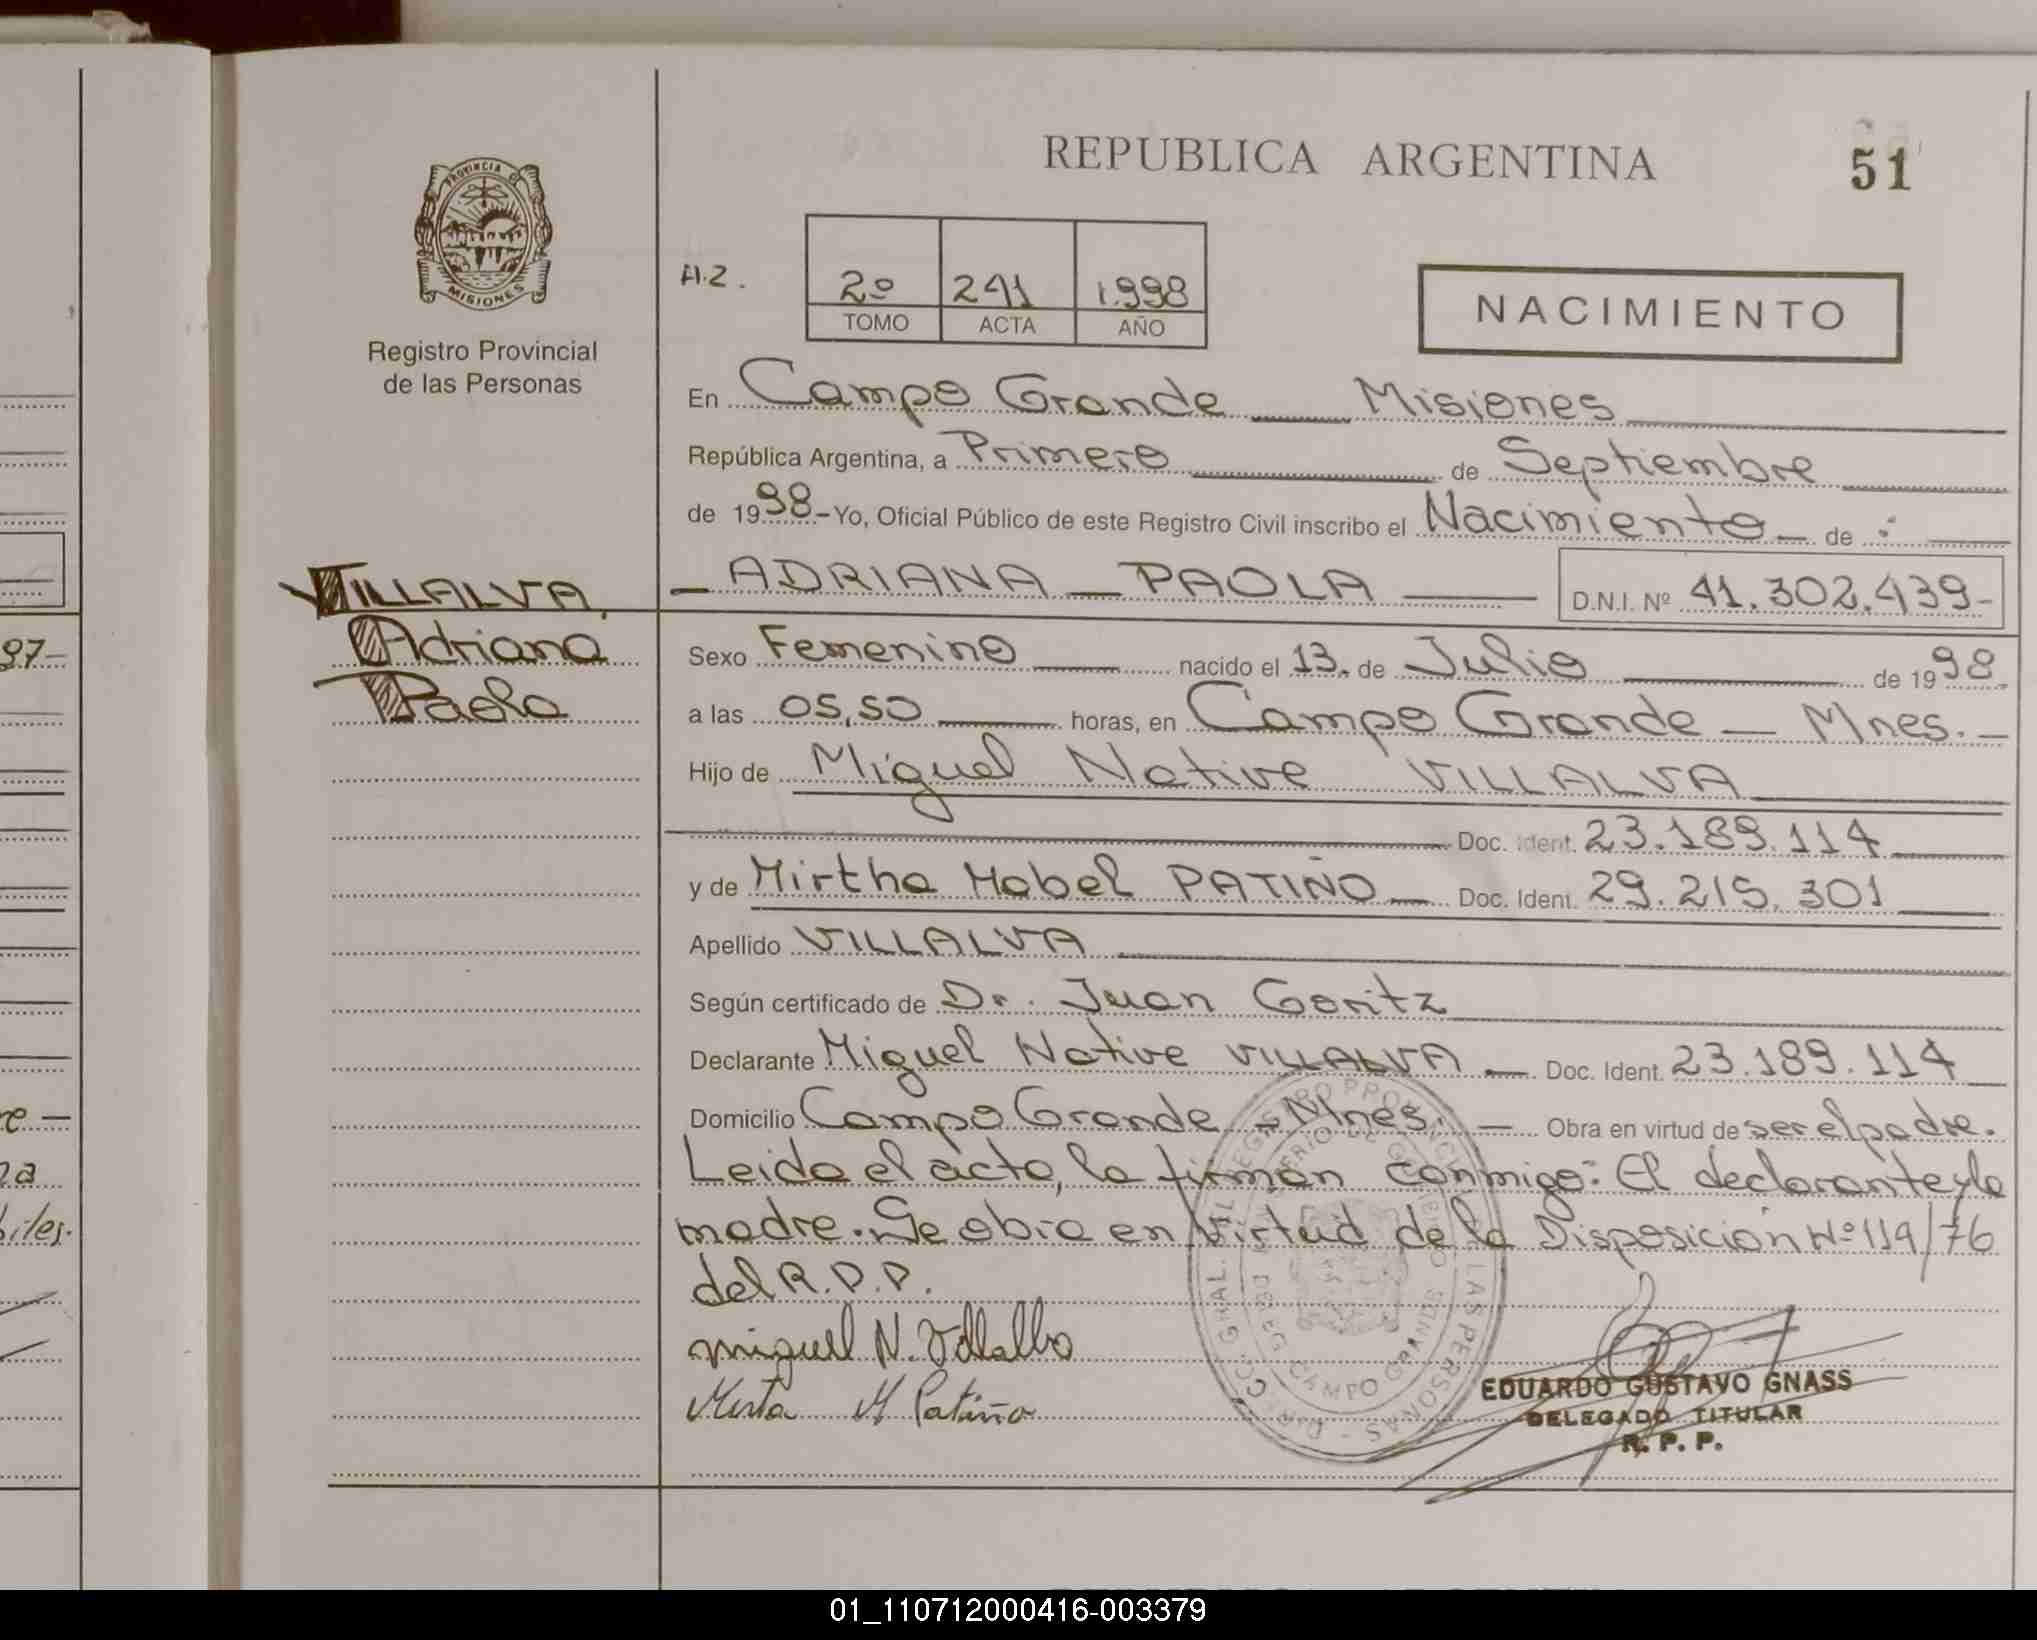 REPUBLICA ARGENTINA
51
PROVINCIA D
MISIONES
Registro Provincial
de las Personas
H.Z.
2º 241 1.998
TOMO ACTA AÑO
NACIMIENTO
En Campo Grande Misiones
República Argentina, a Primero de Septiembre
de 1998 - Yo, Oficial Público de este Registro Civil inscribo el Nacimiento de :
VILLALVA.
Adriana
Paola
ADRIANA PAOLA D.N.I. Nº 41.302.439-
Sexo Femenino nacido el 13. de Julio de 1998.
a las 05,50 horas, en Campo Grande - Mnes. -
Hijo de Miguel Native VILLALVA
Doc. Ident. 23.189.114
y de Mirtha Mabel PATIÑO Doc. Ident. 29.215.301
Apellido VILLALVA
Según certificado de Dr. Juan Goritz
Declarante Miguel Native VILLALVA Doc. Ident. 23.189.114
Domicilio Campo Grande - Mnes. - Obra en virtud de ser el padre.
Leida el acta, la firman conmigo: El declarante y la
madre. Se obra en virtud de la Disposición Nº 119/76
del R.P.P.
miguel N. Villalba
Mirta M Patiño
EDUARDO GUSTAVO GNASS
DELEGADO TITULAR
R. P. P.
97-
re -
za
biles.
01_110712000416-003379